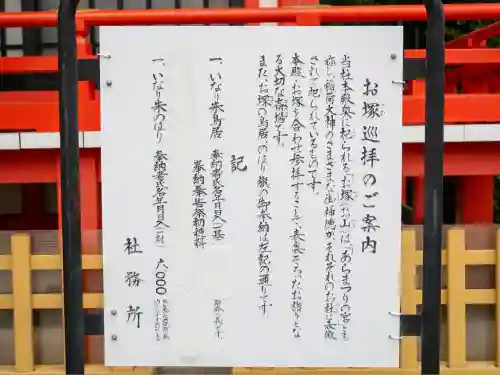 お塚巡拝のご案内
当社本殿奥に祀られる「お塚(お山)」は「あらまつりの宮」とも
称し、稲荷大神のさまざまな御神徳がそれぞれのお社に表徴
されて祀られているものです。
本殿・お塚を合わせ参拝することで、表裏そろったお詣りとな
る大切な斎場です。
また、お塚の鳥居・のぼり旗の御奉納は左記の通りです。
記
一、いなり朱鳥居
奉納者氏名年月日入(一基)
奉納奉告祭初穂料
一、いなり朱のぼり
奉納者氏名年月日入(一対)
六、000
社務所